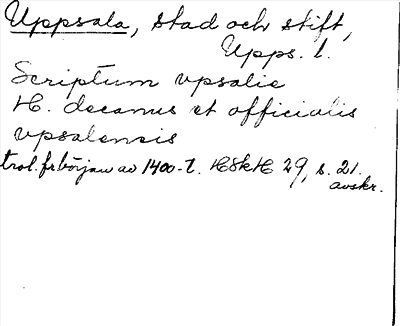 Uppsala, stad och stift,
Upps. l.
Scriptum vpsalie
H. decanus et officialis
vpsalensis
trol. fr början av 1400-t. HSkH 29, s. 21.
avskr.